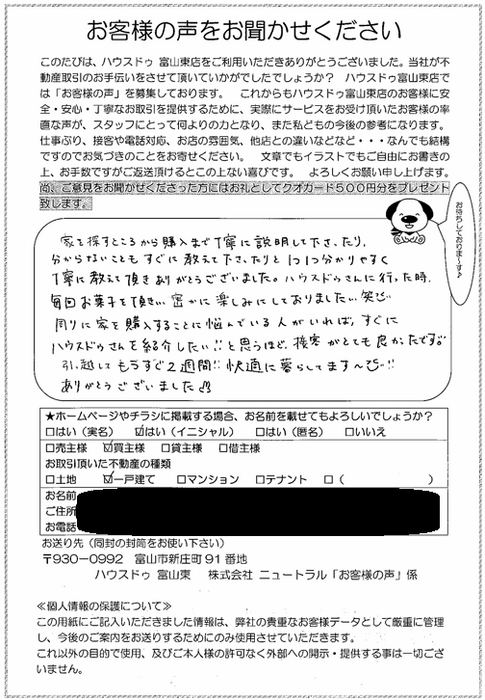 お客様の声をお聞かせください
このたびは、ハウスドゥ 富山東店をご利用いただきありがとうございました。当社が不
動産取引のお手伝いをさせて頂いていかがでしたでしょうか? ハウスドゥ富山東店で
は「お客様の声」を募集しております。 これからもハウスドゥ富山東店のお客様に安
全・安心・丁寧なお取引を提供するために、実際にサービスをお受け頂いたお客様の率
直な声が、スタッフにとって何よりの力となり、また私どもの今後の参考になります。
仕事ぶり、接客や電話対応、お店の雰囲気、他店との違いなどなど・・・なんでも結構
ですのでお気づきのことをお寄せください。 文章でもイラストでもご自由にお書きの
上、お手数ですがご返送頂けるとこの上ない喜びです。 よろしくお願い申し上げます。
尚、ご意見をお聞かせくださった方にはお礼としてクオカード500円分をプレゼント
致します。
お待ちしておりま~す♪
家を探すところから購入まで丁寧に説明して下さったり、
分からないこともすぐに教えて下さったりと1つ1つ分かりやすく
丁寧に教えて頂きありがとうございました。ハウスドゥさんに行った時、
毎回お菓子を頂き、密かに楽しみにしておりました。笑
周りに家を購入することに悩んでいる人がいれば、すぐに
ハウスドゥさんを紹介したい!!と思うほど、接客がとても良かったです。
引っ越してもうすぐ2週間!!快適に暮らしてます~!!
ありがとうございました
★ホームページやチラシに掲載する場合、お名前を載せてもよろしいでしょうか?
□はい(実名) ☑はい(イニシャル) □はい(匿名) □いいえ
□売主様 ☑買主様 □貸主様 □借主様
お取引頂いた不動産の種類
□土地 ☑一戸建て □マンション □テナント □( )
お名前
ご住所
お電話
お送り先(同封の封筒をお使い下さい)
〒930-0992 富山市新庄町91番地
ハウスドゥ 富山東 株式会社 ニュートラル「お客様の声」係
≪個人情報の保護について≫
この用紙にご記入いただきました情報は、弊社の貴重なお客様データとして厳重に管理
し、今後のご案内をお送りするためにのみ使用させていただきます。
これ以外の目的で使用、及びご本人様の許可なく外部への開示・提供する事は一切ござ
いません。